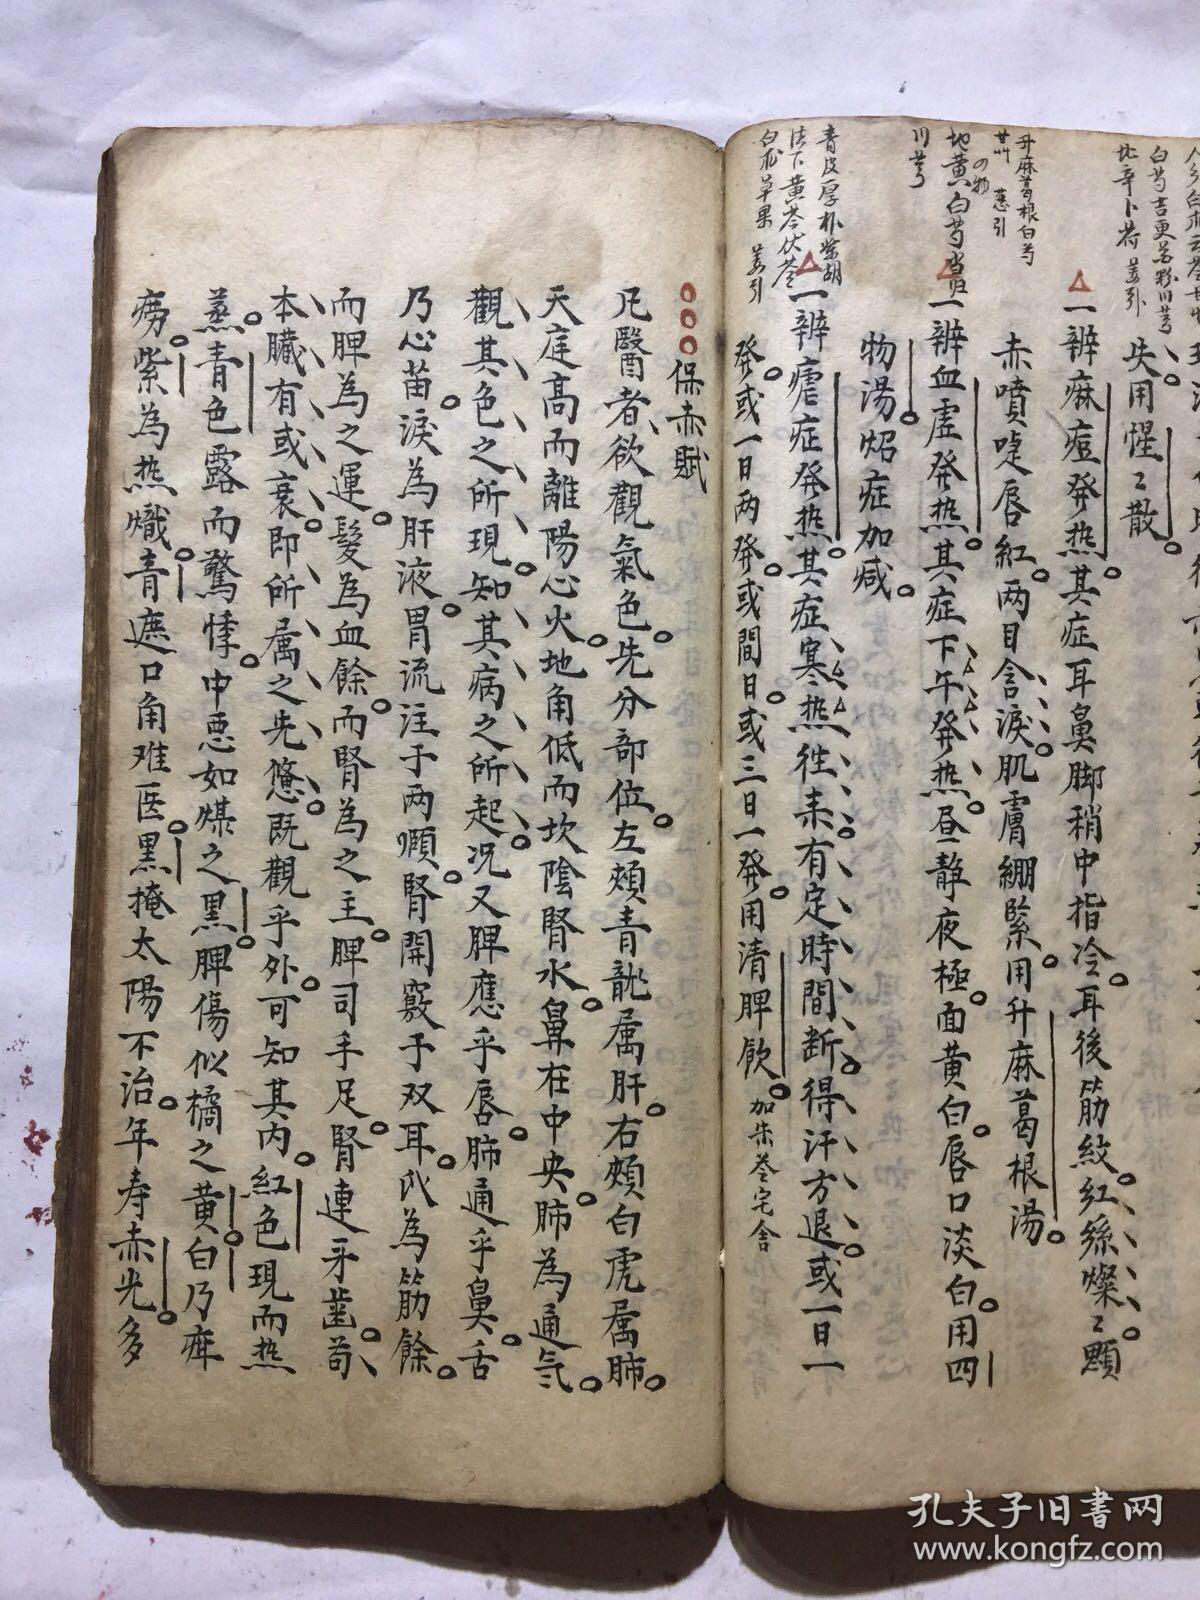 失用惺〻散
一辨痳痘發热其症耳鼻脚稍中指冷耳後筋紋紅絲燦〻顋
赤噴嚏唇紅两目含淚肌膚绷緊用升麻葛根湯
一辨血虛發热其症下午發热昼静夜極面黄白唇口淡白用四
物湯炤症加减
一辨瘧症發热其症寒热徃来有定時間断得汗方退或一日一
發或一日两發或間日或三日一發用清脾飲
升麻葛根白芍
甘艸 葱引
四物
地黄白芍当归
川芎
青皮厚朴柴胡
法下黄芩伏苓
白朮草果 姜引
保赤賦
凡醫者欲觀氣色先分部位左頰青龍属肝右頰白虎属肺
天庭高而離陽心火地角低而坎陰腎水鼻在中央肺為通气
觀其色之所現知其病之所起况又脾應乎唇肺通乎鼻舌
乃心苗淚為肝液胃流注于两頤腎開竅于双耳爪為筋餘
而脾為之運髮為血餘而腎為之主脾司手足腎連牙齒苟
本臟有或衰即所属之先悠既觀乎外可知其内紅色現而热
蒸青色露而驚悸中恶如煤之黑脾傷似橘之黄白乃疳
痨紫為热熾青遮口角难医黒掩太陽不治年寿赤光多
孔夫子旧书网
www.kongfz.com